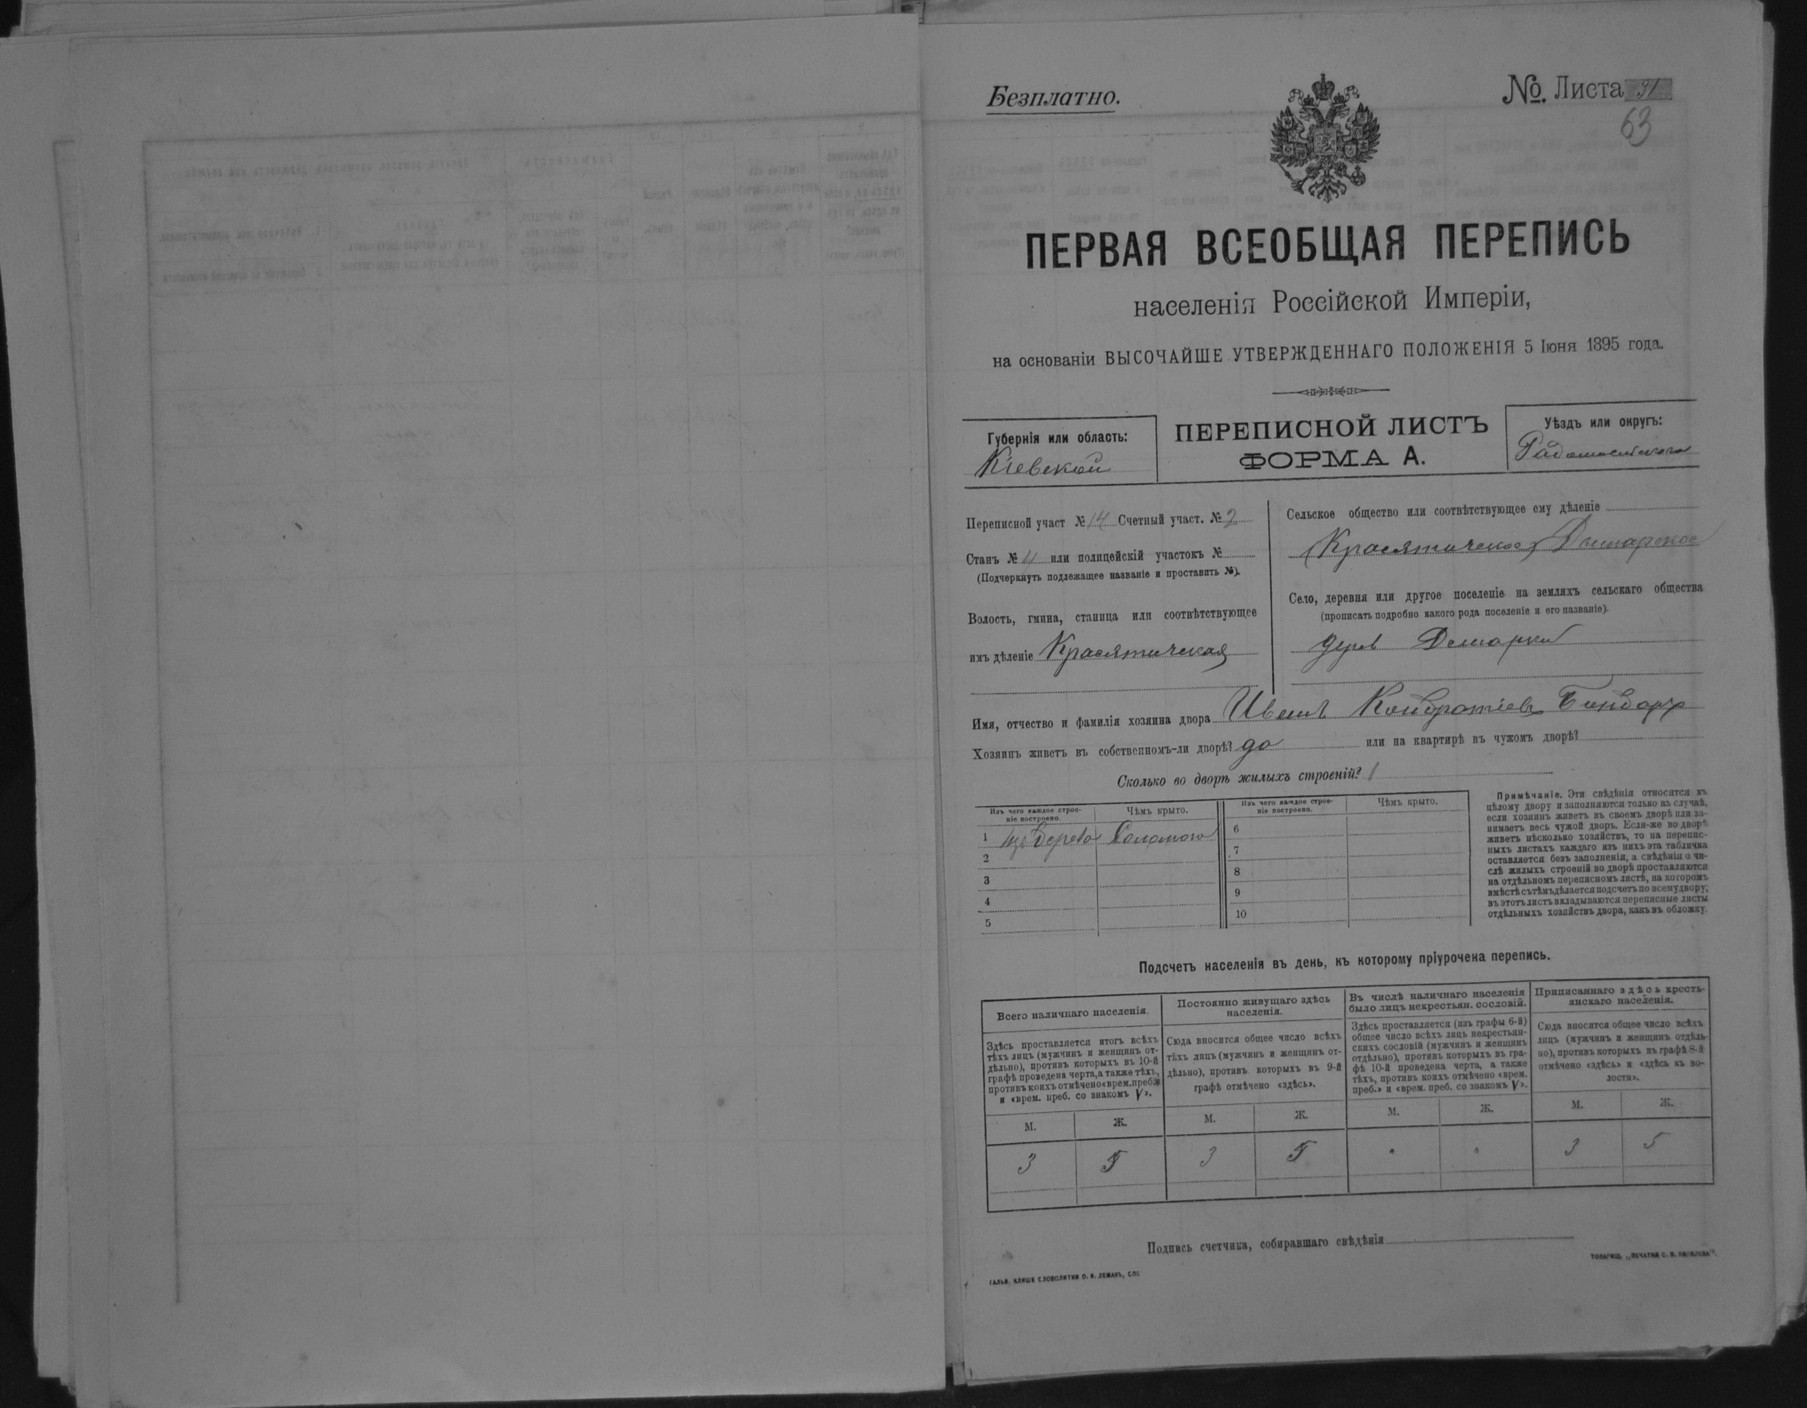 Безплатно.
№. Листа 31
63
ПЕРВАЯ ВСЕОБЩАЯ ПЕРЕПИСЬ
населенія Россійской Имперіи,
на основаніи ВЫСОЧАЙШЕ УТВЕРЖДЕННАГО ПОЛОЖЕНІЯ 5 Іюня 1895 года.
Губернія или область:
Кіевской
ПЕРЕПИСНОЙ ЛИСТЪ
ФОРМА А.
Уѣздъ или округъ:
Радомысльскаго
Переписной участ № 14 Счетный участ. № 2
Станъ № 4 или полицейскій участокъ №
(Подчеркнуть подлежащее названіе и проставить №).
Волость, гмина, станица или соотвѣтствующее
имъ дѣленіе Красятическая
Сельское общество или соотвѣтствующее ему дѣленіе
(Красятическое)
Село, деревня или другое поселеніе на земляхъ сельскаго общества
(прописать подробно какого рода поселеніе и его названіе).
дерев
Имя, отчество и фамилія хозяина двора Иванъ Кондратіевъ Бондарь
Хозяинъ живетъ въ собственномъ-ли дворѣ? да или на квартирѣ въ чужомъ дворѣ?
Сколько во дворѣ жилыхъ строеній? 1
Изъ чего каждое строе-
ніе построено.
Чѣмъ крыто.
1 изъ Дерева Соломою
2
3
4
5
Изъ чего каждое строе-
ніе построено.
Чѣмъ крыто.
6
7
8
9
10
Примѣчаніе. Эти свѣдѣнія относятся къ
цѣлому двору и заполняются только въ случаѣ,
если хозяинъ живетъ въ своемъ дворѣ или за-
нимаетъ весь чужой дворъ. Если-же во дворѣ
живетъ нѣсколько хозяйствъ, то на перепис-
ныхъ листахъ каждаго изъ нихъ эта табличка
оставляется безъ заполненія, а свѣдѣнія о чи-
слѣ жилыхъ строеній во дворѣ проставляются
на отдѣльномъ переписномъ листѣ, на которомъ
вмѣстѣ съ тѣмъ дѣлается подсчетъ по всему двору;
въ этотъ листъ вкладываются переписные листы
отдѣльныхъ хозяйствъ двора, какъ въ обложку.
Подсчетъ населенія въ день, къ которому пріурочена перепись.
Всего наличнаго населенія.
Здѣсь проставляется итогъ всѣхъ
тѣхъ лицъ (мужчинъ и женщинъ от-
дѣльно), противъ которыхъ въ 10-й
графѣ проведена черта, а также тѣхъ,
противъ коихъ отмѣчено «врем. преб.»
и «врем. преб. со знакомъ V».
Постоянно живущаго здѣсь
населенія.
Сюда вносится общее число всѣхъ
тѣхъ лицъ (мужчинъ и женщинъ от-
дѣльно), противъ которыхъ въ 9-й
графѣ отмѣчено «здѣсь».
Въ числѣ наличнаго населенія
было лицъ некрестьян. сословій.
Здѣсь проставляется (изъ графы 6-й)
общее число всѣхъ лицъ некрестьян-
скихъ сословій (мужчинъ и женщинъ
отдѣльно), противъ которыхъ въ гра-
фѣ 10-й проведена черта, а также
тѣхъ, противъ коихъ отмѣчено «врем.
преб.» и «врем. преб. со знакомъ V».
Приписаннаго здѣсь кресть-
янскаго населенія.
Сюда вносится общее число всѣхъ
лицъ (мужчинъ и женщинъ отдѣль-
но), противъ которыхъ въ графѣ 8-й
отмѣчено «здѣсь» и «здѣсь въ во-
лости».
М. Ж. М. Ж. М. Ж. М. Ж.
3 5 3 5 " " 3 5
Подпись счетчика, собиравшаго свѣдѣнія
ГАЛЬВ. КЛИШЕ СЛОВОЛИТНИ О. И. ЛЕМАНЪ, СПБ.
ТОВАРИЩ. „ПЕЧАТНЯ С. П. ЯКОВЛЕВА“.